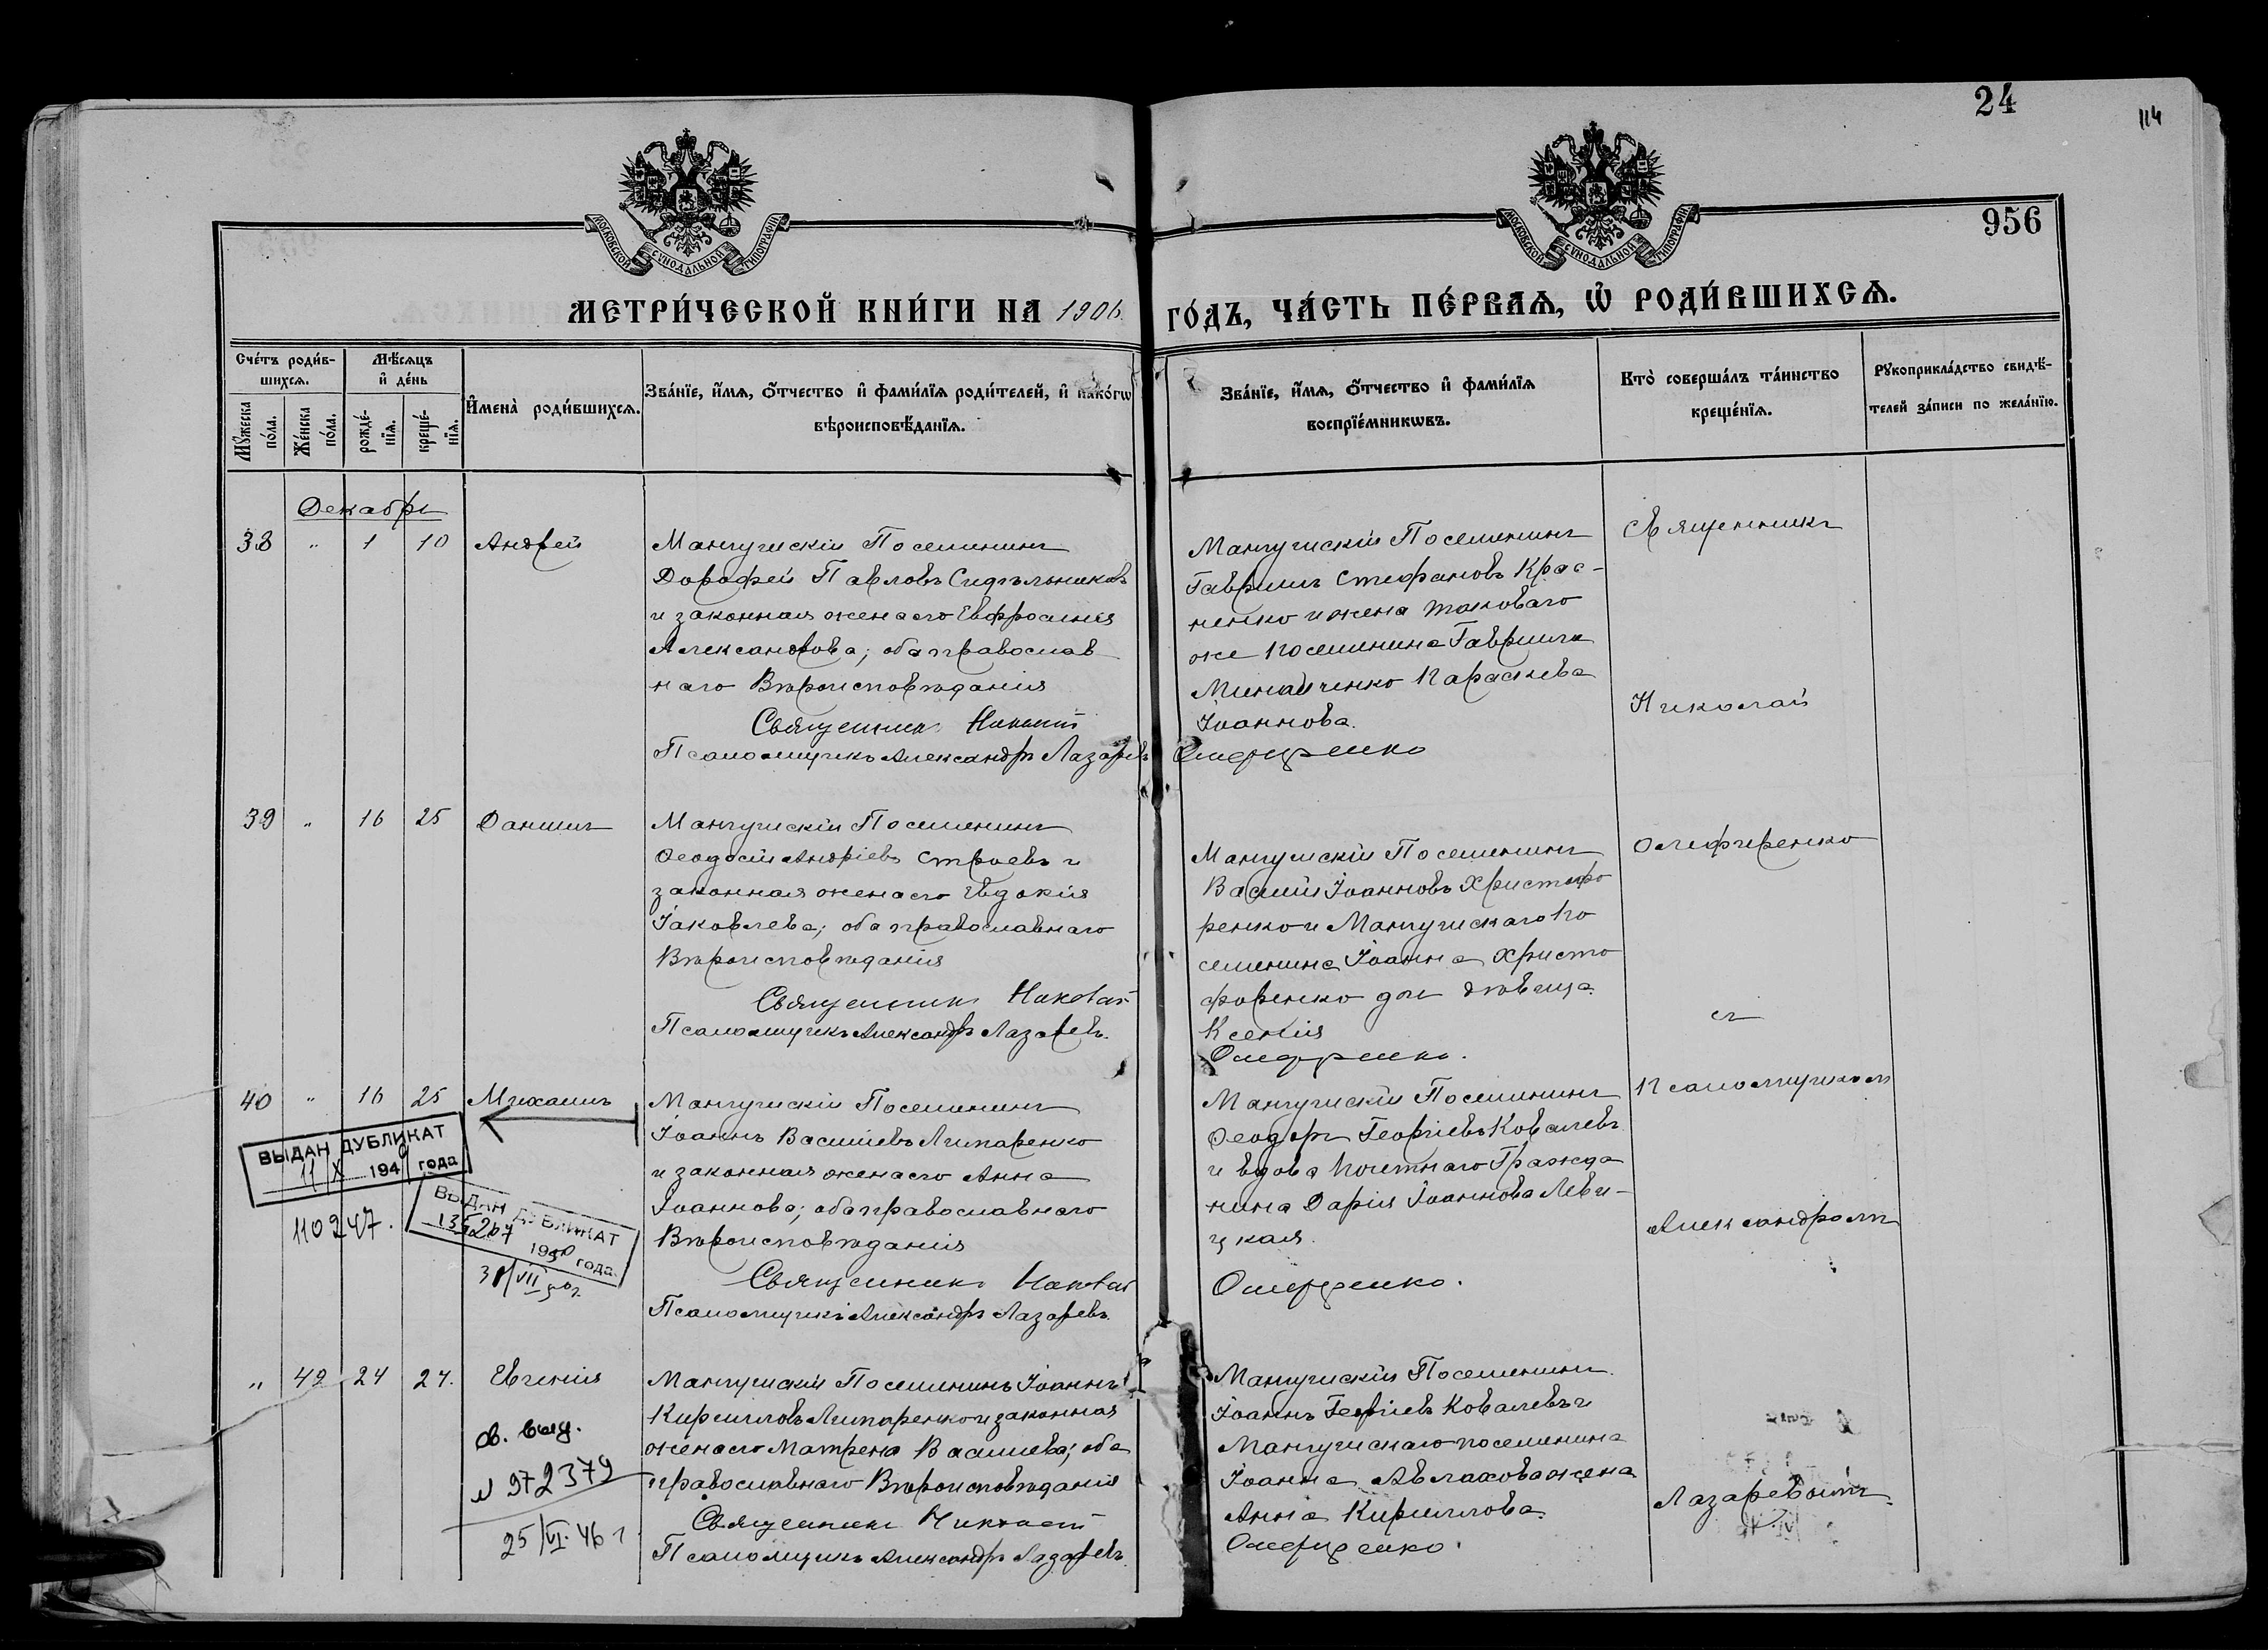 24
114
МОСКОВСКОЙ СѴНОДАЛЬНОЙ ТИПОГРАФІИ
МОСКОВСКОЙ СѴНОДАЛЬНОЙ ТИПОГРАФІИ
956
МЕТРИ́ЧЕСКОЙ КНИ́ГИ НА 1906
ГО́ДЪ, ЧА́СТЬ ПЕ́РВАѦ, Ѡ҆ РОДИ́ВШИХСѦ.
Сче́тъ роди́в-
шихсѧ.
Мꙋ́жеска по́ла.
Же́нска по́ла.
Мѣ́сѧцъ
и҆ де́нь
рожде́-
нїѧ.
креще́-
нїѧ.
И҆мена̀ роди́вшихсѧ.
Зва́нїе, и҆́мѧ, ѻ҆́тчество и҆ фами́лїѧ роди́телей, и҆ како́гѡ
вѣроисповѣ́данїѧ.
Зва́нїе, и҆́мѧ, ѻ҆́тчество и҆ фами́лїѧ
воспрїе́мникѡвъ.
Кто̀ соверша́лъ та́инство
креще́нїѧ.
Рꙋкоприкла́дство свидѣ́-
телей за́писи по жела́нїю.
Декабрь
38 " 1 10 Андрей
Мангушскій Поселянинъ
Дорофей Павловъ Сидѣльниковъ
и законная жена его Евфросинія
Александрова; оба православ
наго Вѣроисповѣданія
Священникъ Николай
Псаломщикъ Александръ Лазаревъ
Мангушскій Поселянинъ
Гавріилъ Стефановъ Крас-
ненко и жена таковаго
же поселянина Гавріила
Минайченко Параскева
Іоаннова.
Олефиренко
Священникъ
Николай
39 " 16 25 Даніилъ
Мангушскій Поселянинъ
Ѳеодосій Андріевъ Строевъ и
законная жена его Евдокія
Іаковлева; оба православнаго
Вѣроисповѣданія
Священникъ Николай
Псаломщикъ Александръ Лазаревъ.
Мангушскій Поселянинъ
Василій Іоанновъ Христофо
ренко и Мангушскаго по
селянина Іоанна Христо
форенко дочь дѣвица
Ксенія
Олефиренко.
Олефиренко
съ
40 " 16 25 Михаилъ
Мангушскій Поселянинъ
Іоаннъ Васильевъ Липаренко
и законная жена его Анна
Іоаннова; оба православнаго
Вѣроисповѣданія
Священникъ Николай
Псаломщикъ Александръ Лазаревъ.
Мангушскій Поселянинъ
Ѳеодоръ Георгіевъ Ковалевъ
и вдова Почетнаго Гражда
нина Дарія Іоаннова Леви-
цкая.
Олефиренко.
Псаломщикомъ
Александромъ
ВЫДАН ДУБЛИКАТ
11/X 194 года
110247.
ВЫДАН ДУБЛИКАТ
1950 года.
31/VII 50г.
" 42 24 27. Евгенія
Мангушскій Поселянинъ Іоаннъ
Кирилловъ Липаренко и законная
жена его Матрена Васильева; оба
православнаго Вѣроисповѣданія
Священникъ Николай
Псаломщикъ Александръ Лазаревъ
Мангушскій Поселянинъ
Іоаннъ Георгіевъ Ковалевъ и
Мангушскаго поселянина
Іоанна Авлахова жена
Анна Кириллова.
Олефиренко.
Лазаревымъ.
св. выд.
N 972379
25/VI-46 г